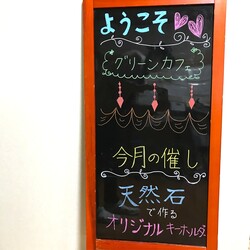 ようこそ
グリーンカフェ
今月の催し
天然石
で作る
オリジナルキーホルダー